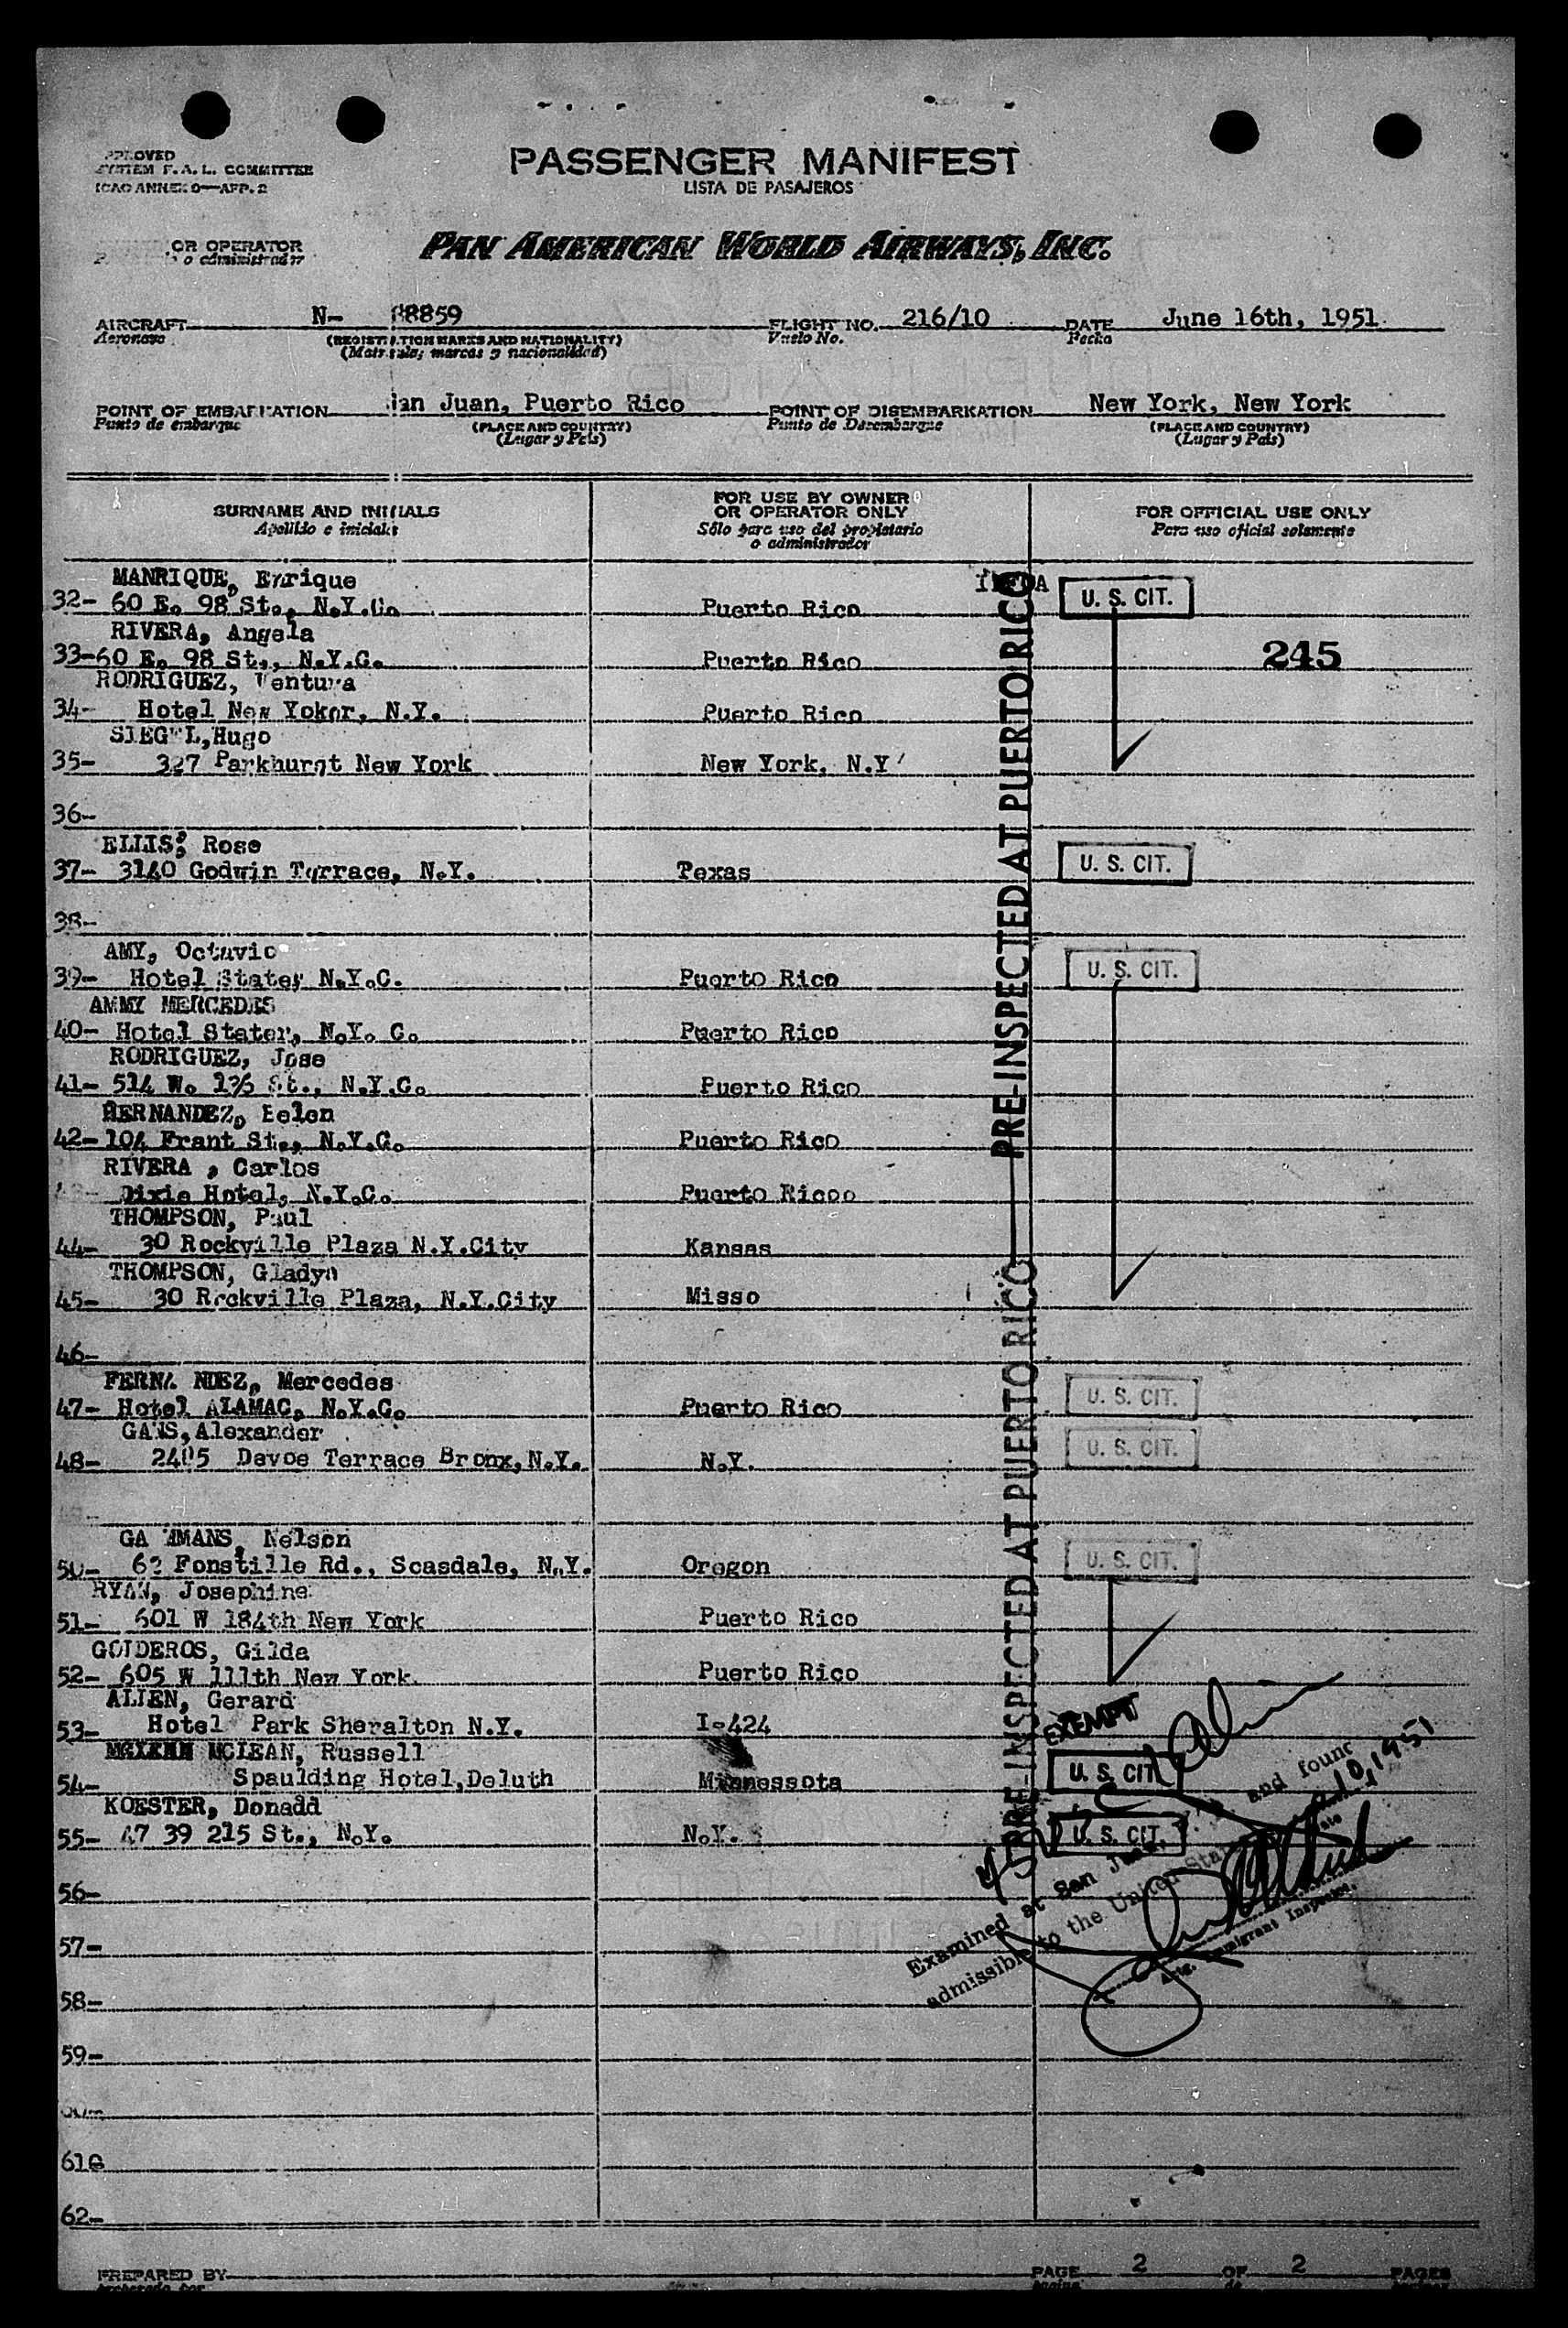 PASSENGER MANIFEST
SYSTEM F. A. L. COMMITTEE
LISTA DE PASAJEROS
ICAO ANNEX 9—APP. 2
OR OPERATOR
o administrador
PAN AMERICAN WORLD AIRWAYS, INC.
AIRCRAFT N- 88859 FLIGHT NO. 216/10 DATE June 16th, 1951
Aeronave (REGISTRATION MARKS AND NATIONALITY) Vuelo No. Fecha
(Matricula; marcas y nacionalidad)
POINT OF EMBARKATION San Juan, Puerto Rico POINT OF DISEMBARKATION New York, New York
Punto de embarque (PLACE AND COUNTRY) Punto de Desembarque (PLACE AND COUNTRY)
(Lugar y País) (Lugar y País)
SURNAME AND INITIALS
Apellido e iniciales
FOR USE BY OWNER
OR OPERATOR ONLY
Sólo para uso del propietario
o administrador
FOR OFFICIAL USE ONLY
Para uso oficial solamente
MANRIQUE, Enrique
32- 60 E. 98 St., N.Y.C. Puerto Rico U. S. CIT.
RIVERA, Angela
33-60 E. 98 St., N.Y.C. Puerto Rico 245
RODRIGUEZ, Ventura
34- Hotel New Yoker, N.Y. Puerto Rico
SIEGEL,Hugo
35- 327 Parkhurst New York New York, N.Y
36-
ELLIS, Rose
37- 3140 Godwin Terrace, N.Y. Texas U. S. CIT.
38-
AMY, Octavio
39- Hotel Stater N.Y.C. Puerto Rico U. S. CIT.
AMMY MERCEDES
40- Hotel Stater, N.Y. C. Puerto Rico
RODRIGUEZ, Jose
41- 514 W. 136 St., N.Y.C. Puerto Rico
HERNANDEZ, Belen
42- 104 Frant St., N.Y.C. Puerto Rico
RIVERA , Carlos
43- Dixie Hotel, N.Y.C. Puerto Ricoo
THOMPSON, Paul
44- 30 Rockville Plaza N.Y.City Kansas
THOMPSON, Gladyn
45- 30 Rockville Plaza, N.Y.City Misso
46-
FERNA NDEZ, Mercedes
47- Hotel ALAMAC, N.Y.C. Puerto Rico U. S. CIT.
GANS,Alexander
48- 2405 Devoe Terrace Bronx,N.Y. N.Y. U. S. CIT.
Nelson
50- Fonstille Rd., Scasdale, N.Y. Oregon U. S. CIT.
RYAN, Josephine
51- 601 W 184th New York Puerto Rico
Gilda
52- 605 W 111th New York. Puerto Rico
ALLEN, Gerard
53- Hotel Park Sheralton N.Y. I-424 EXEMPT
MCLEAN, Russell
54- Spaulding Hotel,Deluth Minnessota U. S. CIT.
KOESTER, Donadd
55- 47 39 215 St., N.Y. N.Y. U. S. CIT.
PRE-INSPECTED AT PUERTO RICO
PRE-INSPECTED AT PUERTO RICO
Examined at San Juan, and found
admissible to the United States
10,1951
Immigrant Inspector.
56-
57-
58-
59-
60-
61
62-
PREPARED BY PAGE 2 OF 2 PAGES